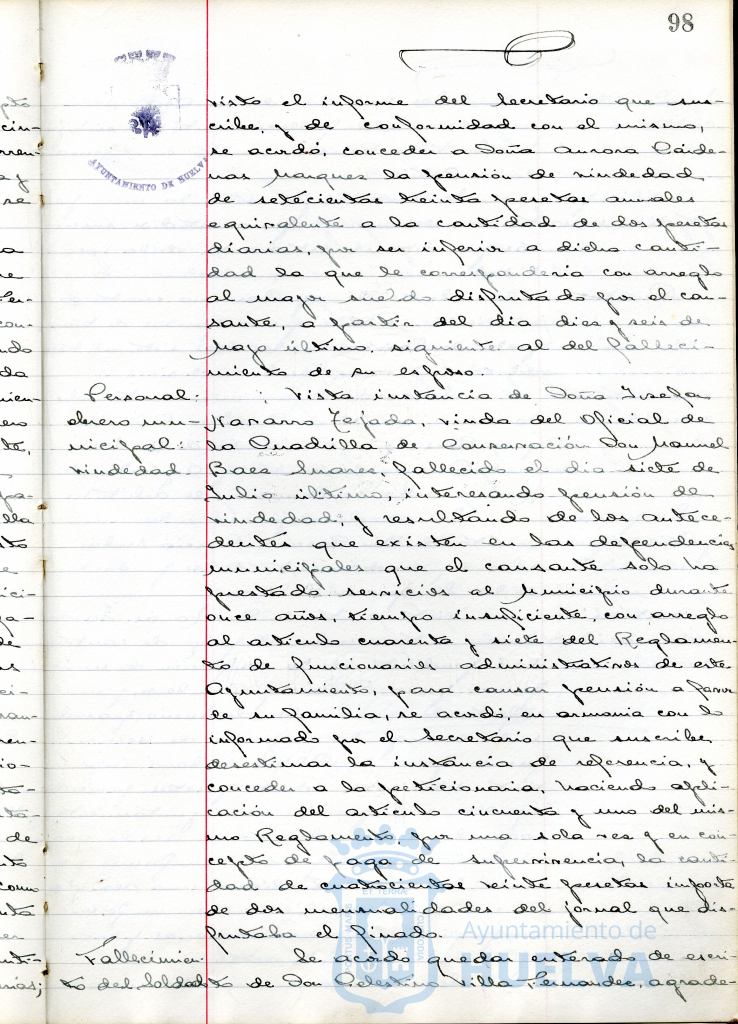 98
AYUNTAMIENTO DE HUELVA
visto el informe del Secretario que sus-
cribe, y de conformidad con el mismo,
se acordó, conceder a Doña Aurora Cárde-
nas Marquez la pensión de viudedad
de setecientas treinta pesetas anuales
equivalente a la cantidad de dos pesetas
diarias, por ser inferior a dicha canti-
dad la que le correspondería con arreglo
al mayor sueldo disfrutado por el cau-
sante, a partir del dia diez y seis de
Mayo último, siguiente al del falleci-
miento de su esposo.
Personal:
obrero mu-
nicipal:
viudedad.
Vista instancia de Doña Josefa
Navarro Tejada, viuda del Oficial de
la Cuadrilla de Conservación Don Manuel
Baez Suarez, fallecido el dia siete de
Julio último, interesando pensión de
viudedad; y resultando de los antece-
dentes que existen en las dependencias
municipales que el causante solo ha
prestado servicios al Municipio durante
once años, tiempo insuficiente, con arreglo
al articulo cuarenta y siete del Reglamen-
to de funcionarios administrativos de este
Ayuntamiento, para causar pensión a favor
de su familia, se acordó, en armonia con lo
informado por el Secretario que suscribe,
desestimar la instancia de referencia, y
conceder a la peticionaria, haciendo apli-
cación del articulo cincuenta y uno del mis-
mo Reglamento, por una sola vez y en con-
cepto de paga de supervivencia, la canti-
dad de cuatrocientas veinte pesetas importe
de dos mensualidades del jornal que dis-
frutaba el finado.
Fallecimien-
to del Soldado
Se acordó quedar enterado de escri-
to de Don Celestino Villa Fernandez, agrade-
Ayuntamiento de
HUELVA